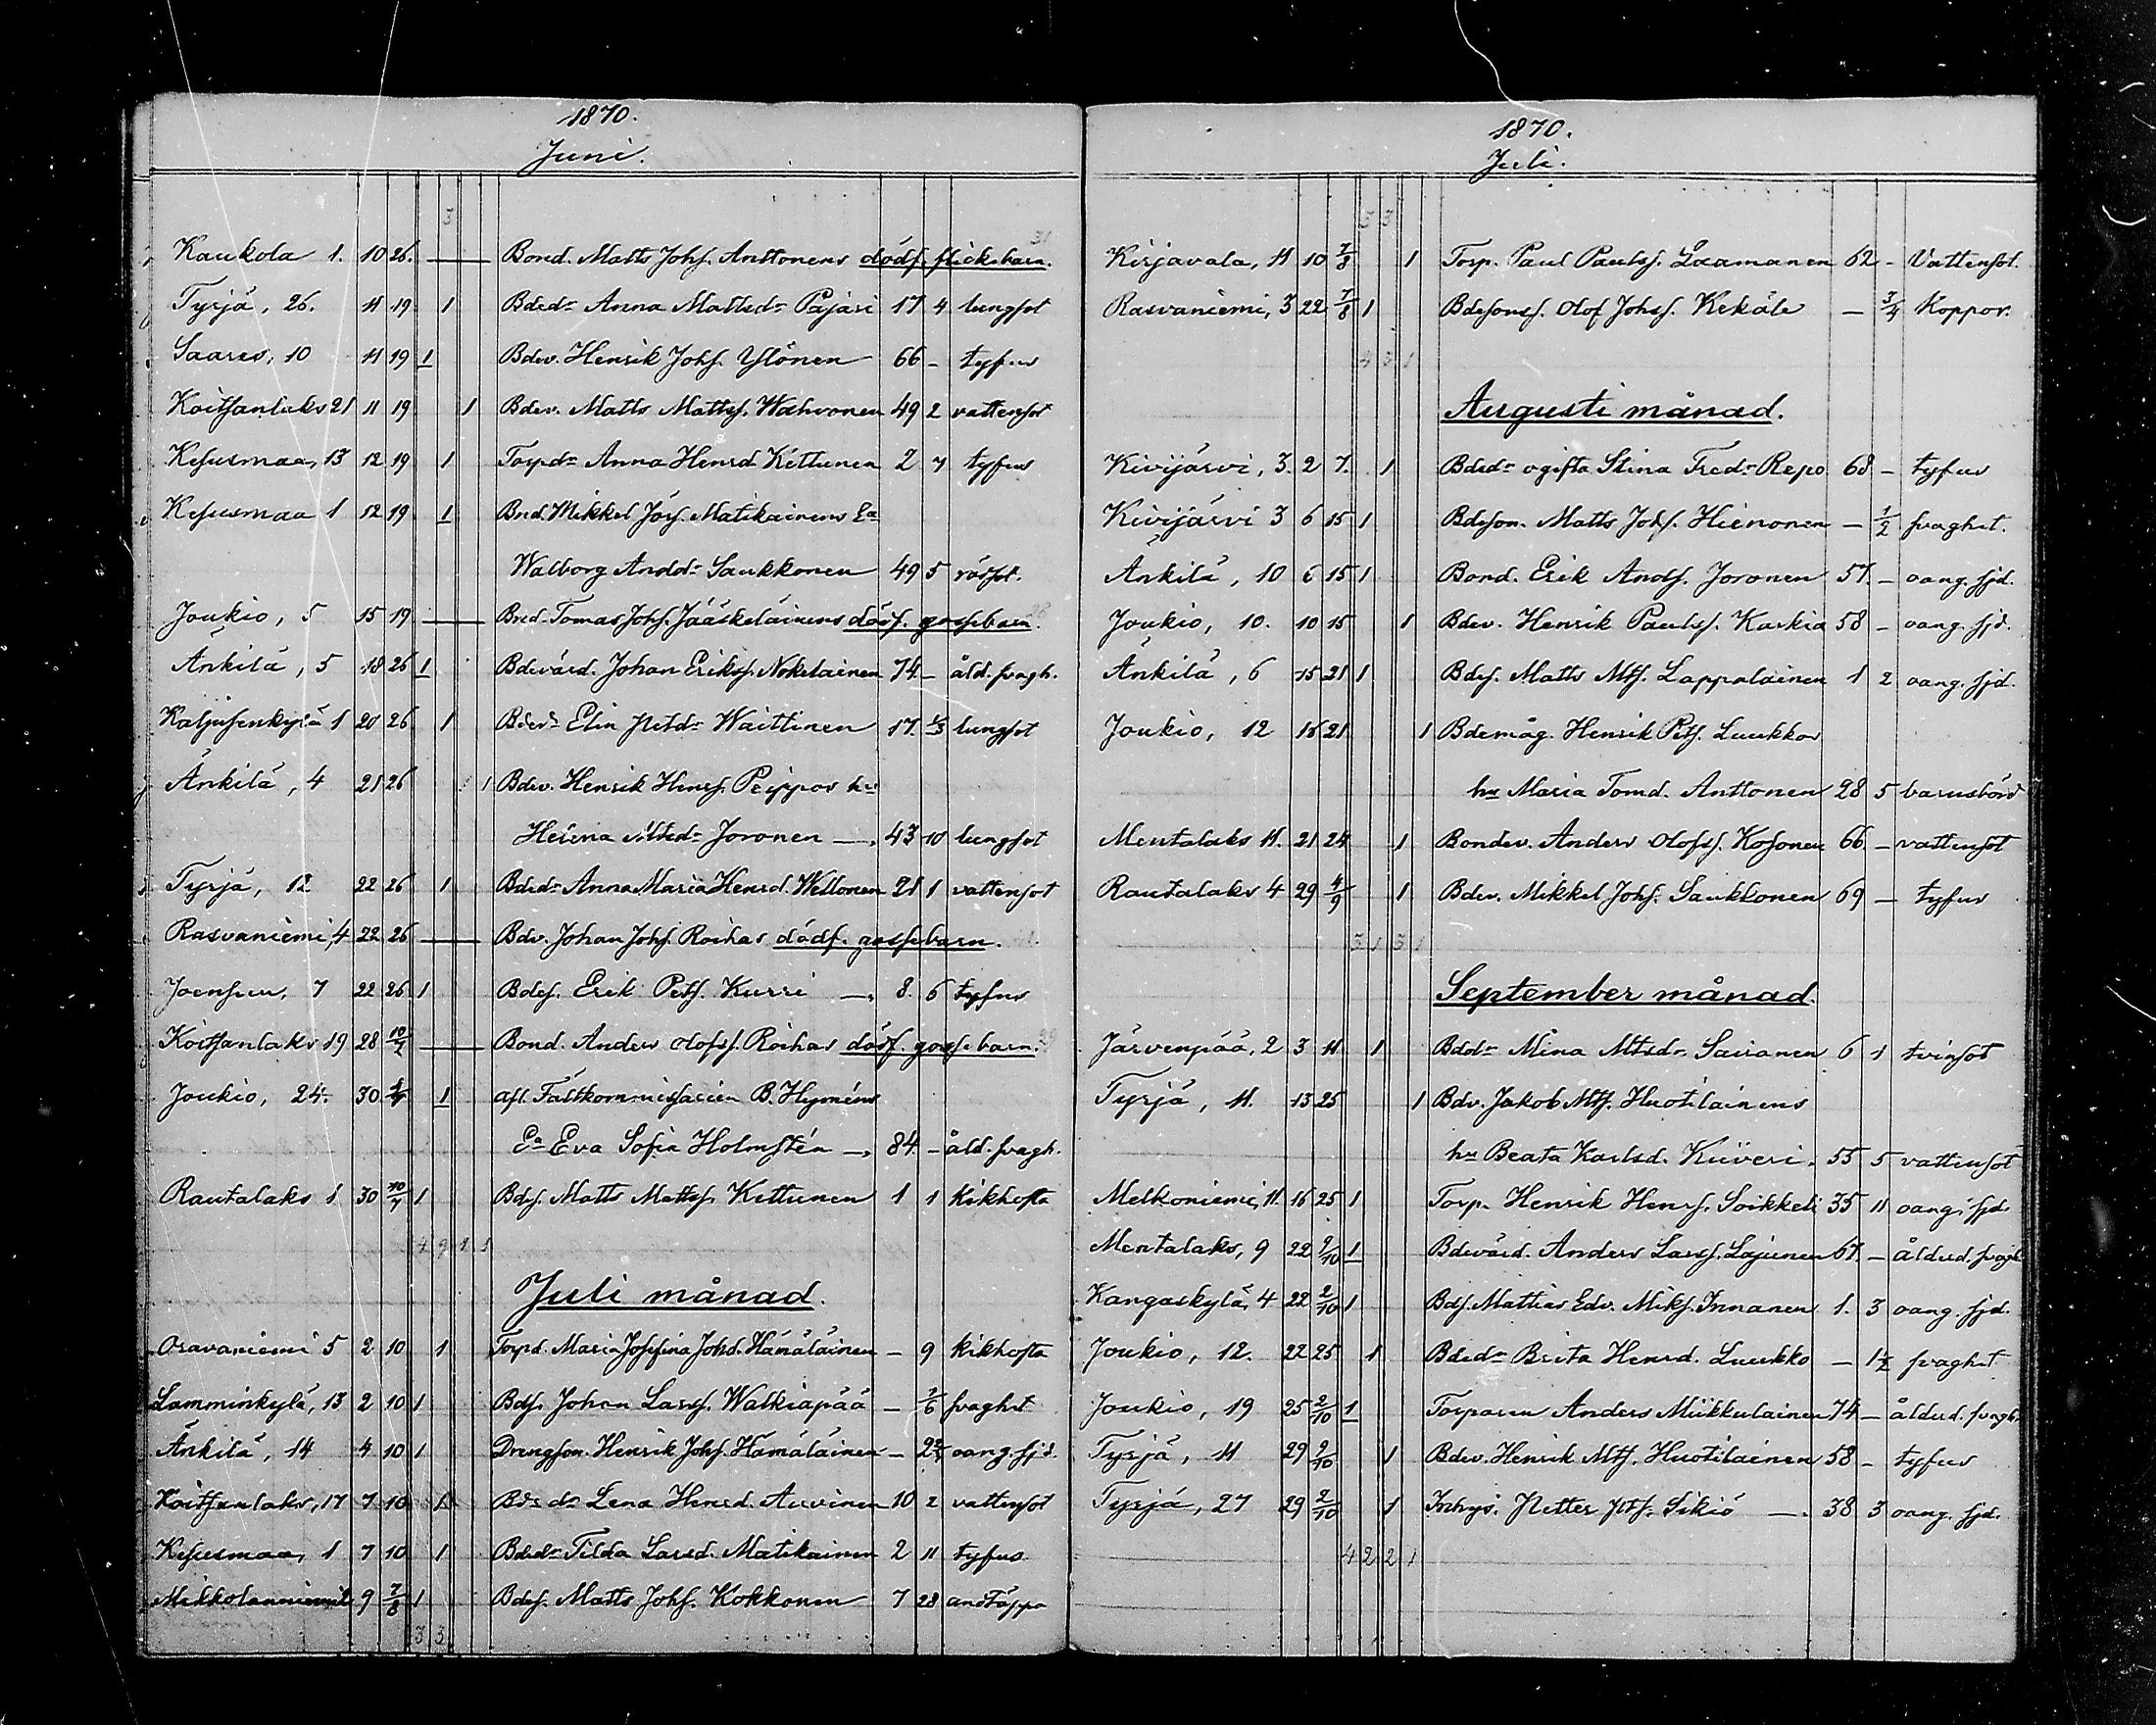 1870.
Juni.
Kaukola 1. 10 26. Bond. Matts Johs. Anttonens dödf. flickebarn.
Tyrjä, 26. 11 19 1 Bdedr Anna Mattsdr Pajari 17 4 lungsot
Saares, 10 11 19 1 Bdev. Henrik Johs. Ylönen 66 - tyfus
Koitsanlaks 21 11 19 1 Bdev. Matts Mattss. Wahvonen 49 2 vattensot
Kesusmaa, 13 12 19 1 Torpdr Anna Henrd Kettunen 2 7 tyfus
Kesusmaa 1 12 19 1 Bnd. Mikkel Jörs. Matikainens Ea
Walborg Anddr Saukkonen 49 5 rödsot.
Joukio, 5 15 19 Bnd. Tomas Johs. Jääskeläinens dödf. gossebarn.
Änkilä, 5 18 26 1 Bdevärd. Johan Erikss. Nokelainen 74. - åld. svagh.
Kaljusenkylä 1 20 26 1 Bdedr Elin Petdr Waittinen 17. 1/3 lungsot
Änkilä, 4 21 26 1 Bdev. Henrik Henrs. Peippos hu
Helena Mtsdr Joronen 43 10 lungsot
Tyrjä, 12 22 26 1 Bdedr Anna Maria Henrd. Wellonen 21 1 vattensot
Rasvaniemi, 4 22 26 Bdv. Johan Johs. Roihas dödf. gossebarn.
Joensuu, 7 22 26 1 Bdes. Erik Pets. Kurri 8. 6 tyfus
Koitsanlaks 19 28 10/7 Bond. Anders Olofss. Roihas dödf. gossebarn.
Joukio, 24. 30 1 afl. Fältkommissarien B. Hyméns
Ea Eva Sofia Holmstén 84. - åld. svagh.
Rautalaks 1 30 10/7 1 Bdes. Matts Mattss. Kettunen 1 1 Kikhosta
4 9 1 1
Juli månad.
Oravaniemi 5 2 10 1 Torpd. Maria Josefina Johsd. Hämäläinen - 9 kikhosta
Lamminkylä, 13 2 10 1 Bdes. Johan Larss. Walkiapää - 1/6 svaghet
Änkilä, 14 4 10 1 Drengson. Henrik Johs. Hämäläinen - oang. sjd.
Koitsanlaks, 17 7 10 1 Bdedr Lena Henrd. Auvinen 10 2 vattensot
Kesusmaa, 1 7 10 1 Bdedr Tilda Larsd. Matikainen 2 11 tyfus
Mikkolanniemi 9 7/8 1 Bdes. Matts Johs. Kokkonen 7 28 andtäppa
3 3
1870.
Juli.
3 3
Kirjavala, 11 10 7/8 1 Torp. Paul Paulss. Laamanen 62 - Vattensot.
Rasvaniemi, 3 22 7/8 1 Bdesons. Olof Johss. Kekäle - 3/4 Koppor.
4 3 1
Augusti månad.
Kivijärvi, 3. 2 7. 1 Bdedr ogifta Stina Fredr Repo 68 - tyfus
Kivijärvi 3 6 15 1 Bdeson. Matts Johs. Hienonen - 1/2 svaghet.
Änkilä, 10 6 15 1 Bond. Erik Ands. Joronen 57. - oang. sjd.
Joukio, 10. 10 15 1 Bdev. Henrik Paulss. Karkia 58 - oang. sjd.
Änkilä, 6 15 21 1 Bdes. Matts Mts. Lappalainen 1 2 oang. sjd.
Joukio, 12 18 21 1 Bdemåg. Henrik Pets. Luukkos
hu Maria Tomd. Anttonen 28 5 barnsbörd
Mentalaks 11. 21 24 1 Bondev. Anders Olofss. Kosonen 66. - vattensot
Rautalaks 4 29 4/9 1 Bdev. Mikkel Johs. Saukkonen 69 - tyfus
3 1 3 1
September månad.
Järvenpää, 2 3 11 1 Bdedr Mina Mtsdr Sairanen 6 1 tvinsot
Tyrjä, 11. 13 25 1 Bdv. Jakob Mts. Huotilainens
hu Beata Karlsd. Kiiveri. 55 5 vattensot
Melkoniemi, 11. 16 25 1 Torp. Henrik Henrs. Soikkeli 35 11 oang. sjd.
Mentalaks, 9 22 2/10 1 Bdevärd. Anders Larss. Lajunen 67. - ålderd. svagh.
Kangaskylä, 4 22 2/10 1 Bds. Mattias Edv. Miks. Innanen 1. 3 oang. sjd.
Joukio, 12. 22 25 1 Bdedr Brita Henrd. Luukko - 1 1/2 svaghet
Joukio, 19 25 2/10 1 Torparen Anders Miikkulainen 74 - ålderd. svagh.
Tyrjä, 11 29 2/10 1 Bdev. Henrik Mts. Huotilainen 58 - tyfus
Tyrjä, 27 29 2/10 1 Inhys. Petter Pts. Sikiö 38 3 oang. sjd.
4 2 2 1